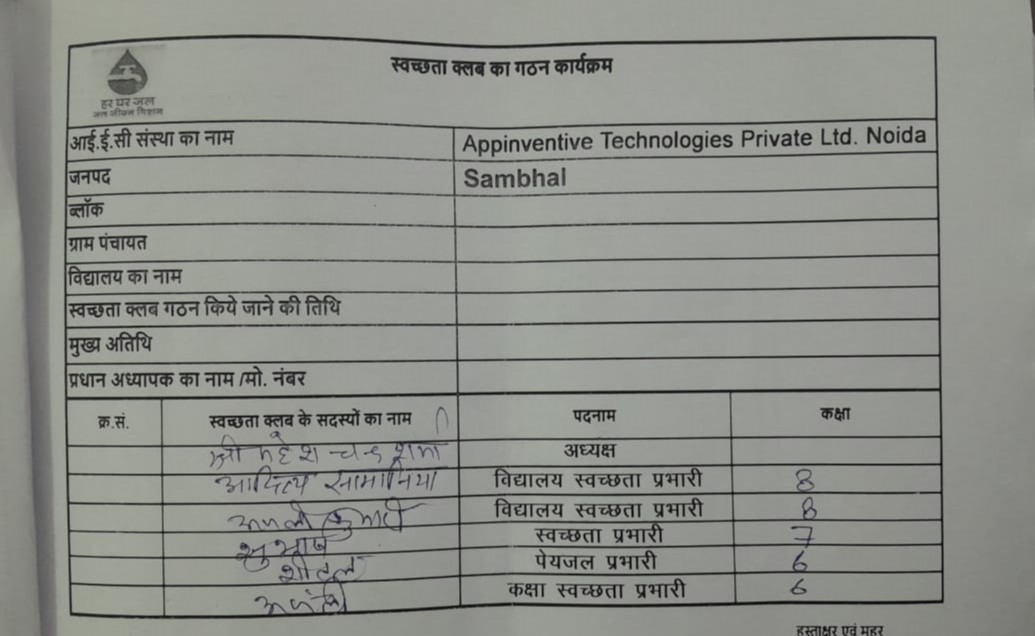 स्वच्छता क्लब का गठन कार्यक्रम
हर घर जल
जल जीवन मिशन
आई.ई.सी संस्था का नाम Appinventive Technologies Private Ltd. Noida
जनपद Sambhal
ब्लॉक
ग्राम पंचायत
विद्यालय का नाम
स्वच्छता क्लब गठन किये जाने की तिथि
मुख्य अतिथि
प्रधान अध्यापक का नाम /मो. नंबर
क्र.सं. स्वच्छता क्लब के सदस्यों का नाम पदनाम कक्षा
श्री महेश चन्द्र शर्मा अध्यक्ष
आदित्य विद्यालय स्वच्छता प्रभारी 8
कुमारी विद्यालय स्वच्छता प्रभारी 8
सुभाष स्वच्छता प्रभारी 7
शीतल पेयजल प्रभारी 6
कक्षा स्वच्छता प्रभारी 6
हस्ताक्षर एवं मुहर